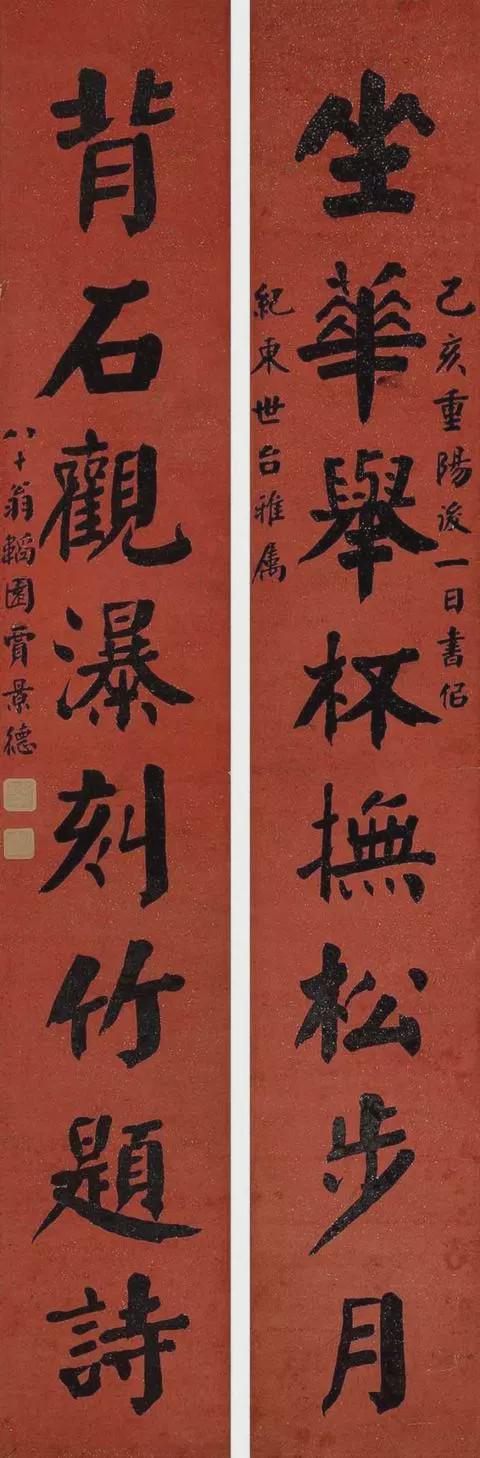 坐華舉杯撫松步月
己亥重陽後一日書侣
紀東世台雅属
背石觀瀑刻竹題詩
八十翁韜園賈景德